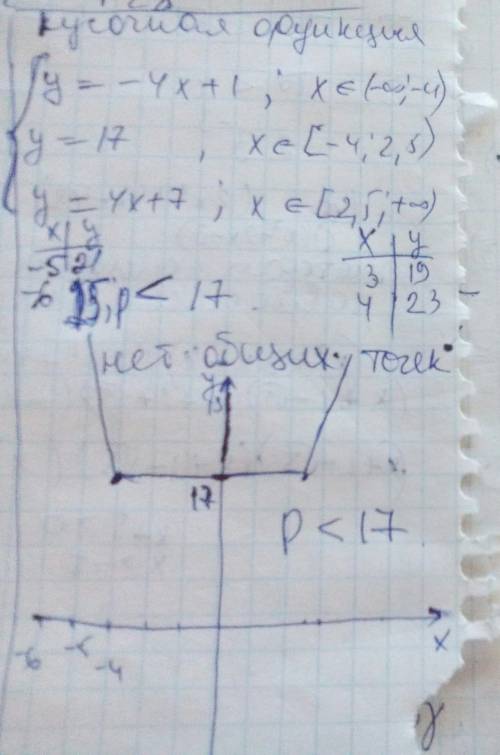 кусочная функция
y = -4x+1 ; x ∈ (-∞; -4)
y = 17 , x ∈ [-4; 2,5)
y = 4x+7 ; x ∈ [2,5; +∞)
x y
-5 21
-6 25, p < 17
x y
3 19
4 23
нет общих точек
y
17
p < 17
-6 -5 -4
x